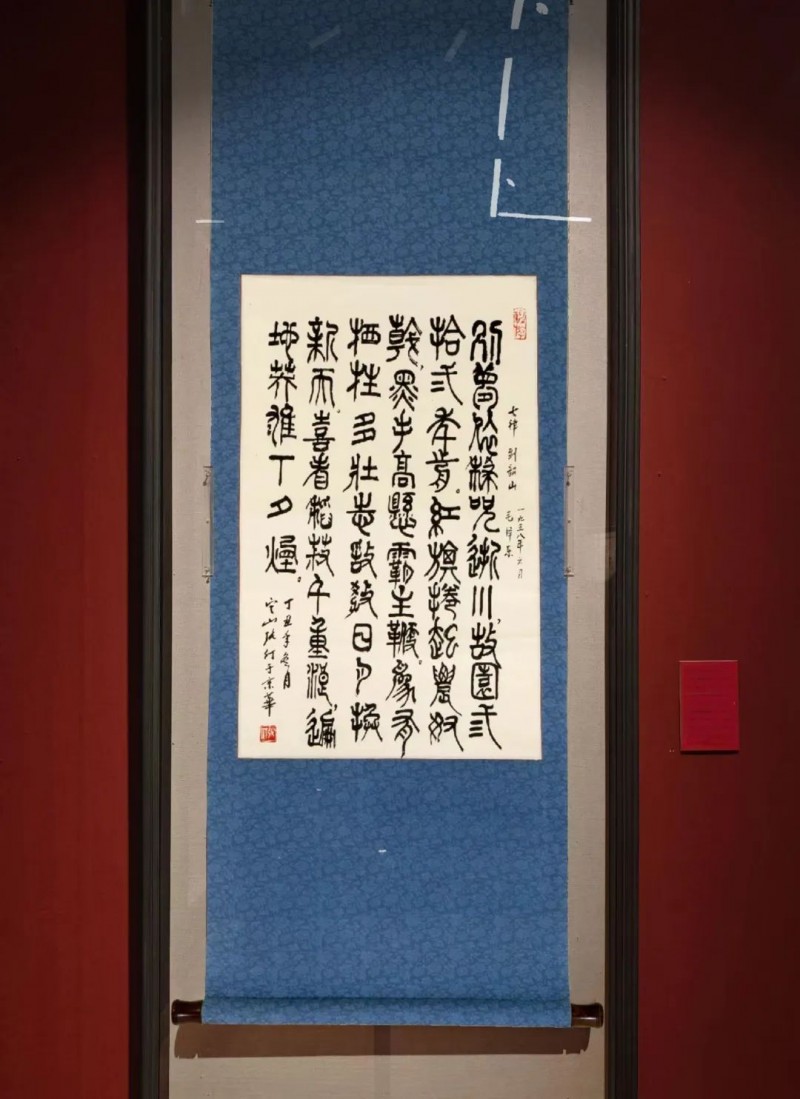 七律 到韶山
一九五九年六月
毛泽东
別夢依稀咒逝川,故園弎
拾弍年前。紅旗捲起農奴
戟,黑手高懸霸主鞭。為有
犧牲多壯志敢教日月換
新天。喜看稻菽千重浪,遍
地英雄下夕煙。
丁丑年冬月
它山张仃于京華